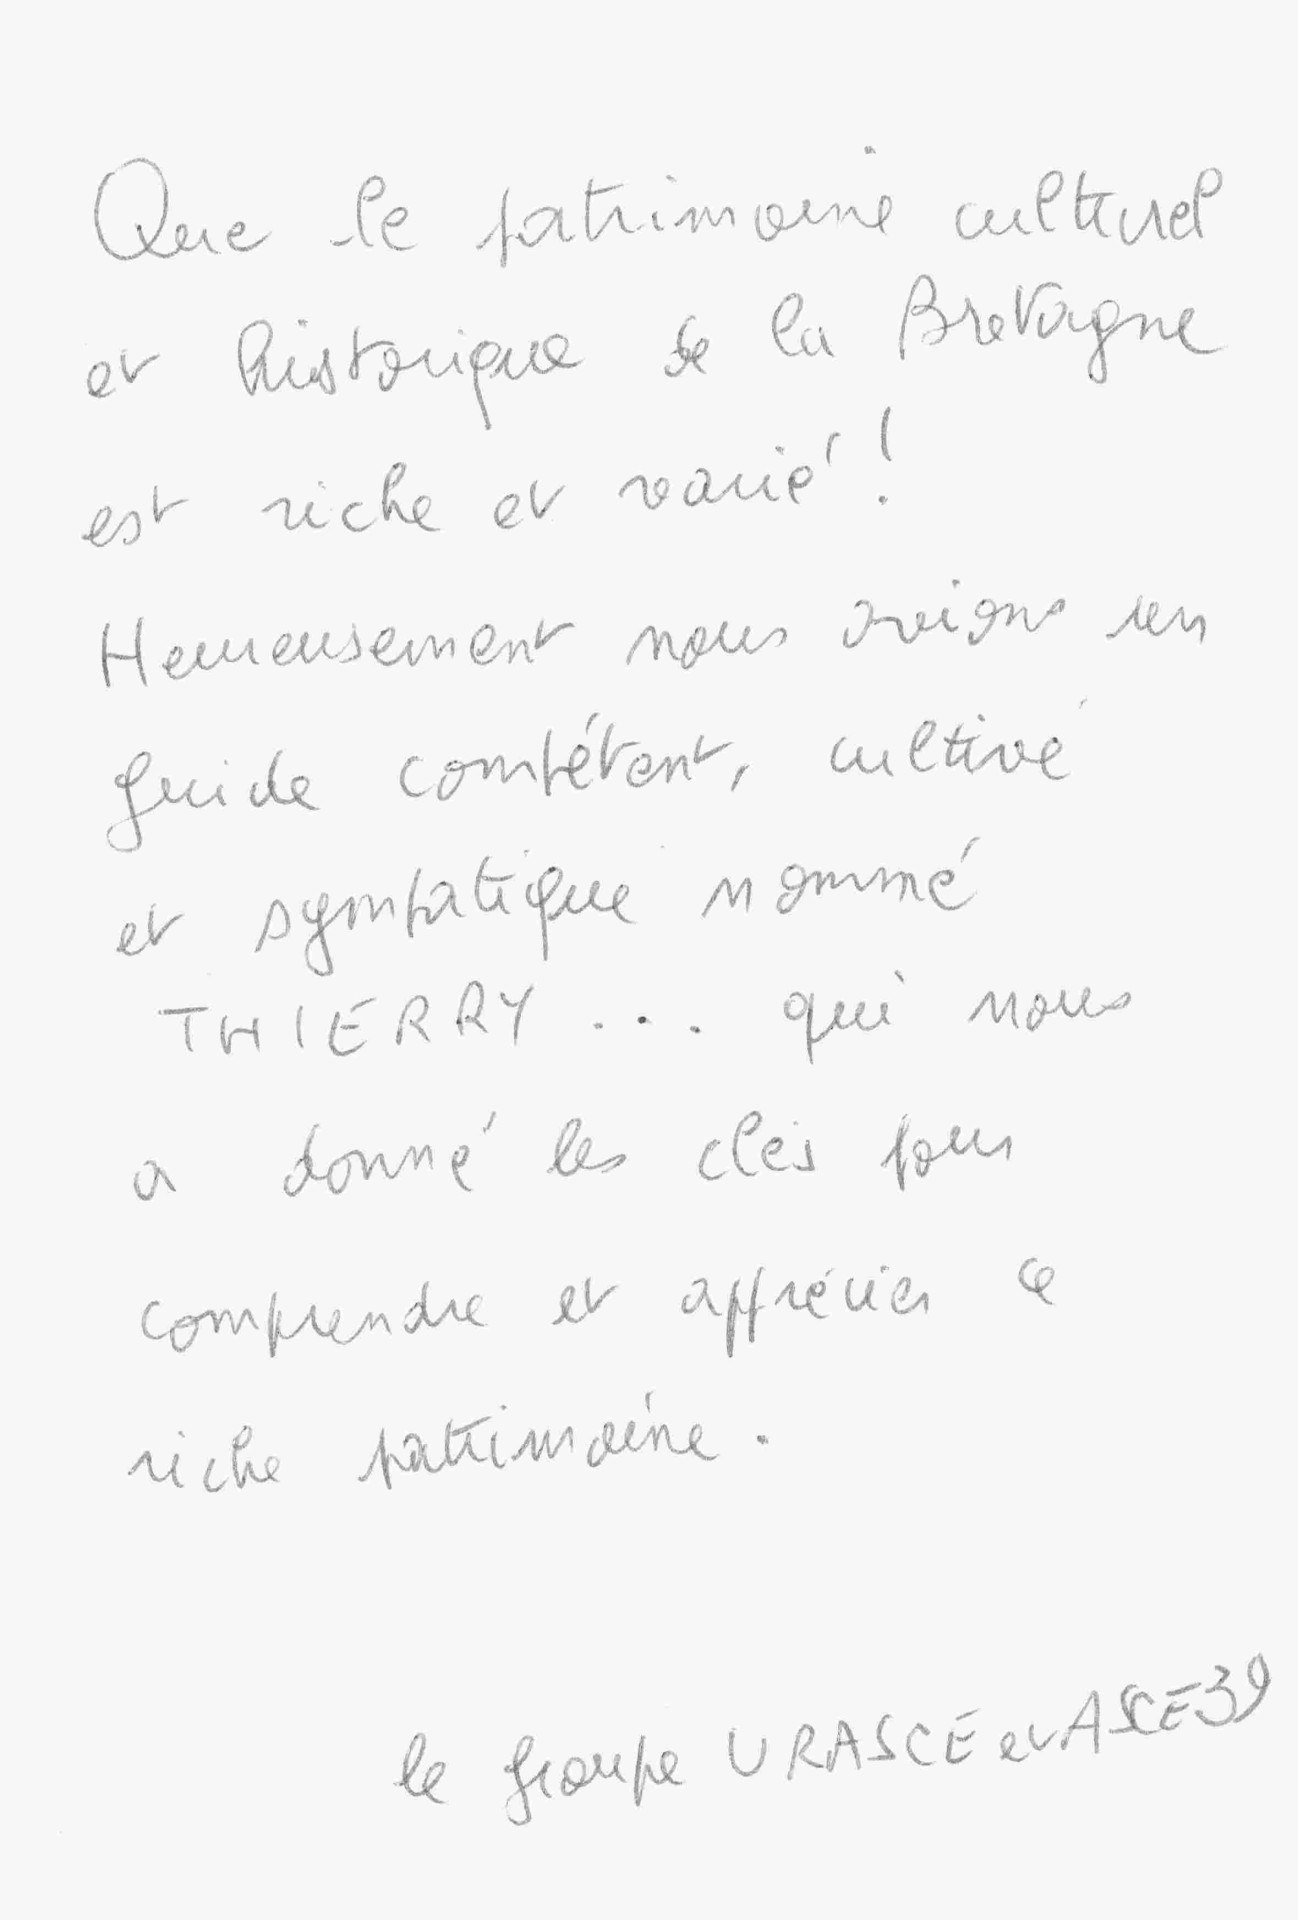 Que le patrimoine culturel
et historique de la Bretagne
est riche et varié !
Heureusement nous avions un
guide compétent, cultivé
et sympatique nommé
THIERRY ... qui nous
a donné les clés pour
comprendre et apprécier ce
riche patrimoine.
le groupe URASCE et ASCE39